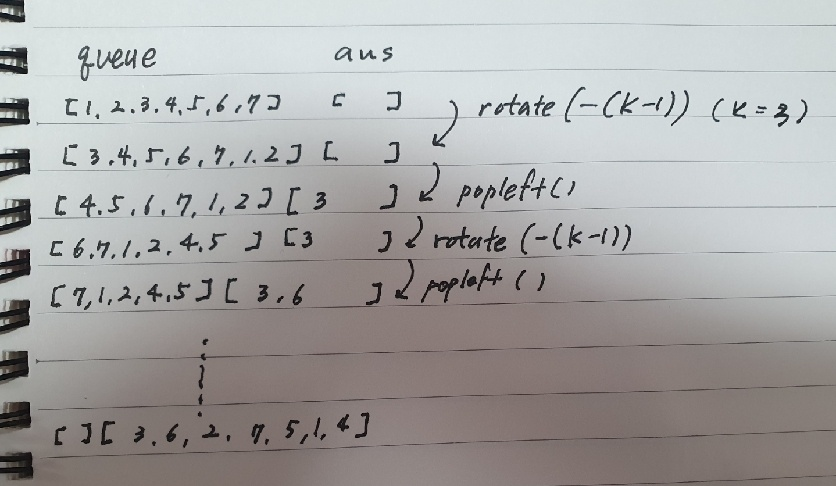 queue ans
[1, 2, 3, 4, 5, 6, 7] [ ] rotate (-(k-1)) (k=3)
[3, 4, 5, 6, 7, 1, 2] [ ]
[4, 5, 6, 7, 1, 2] [3 ] popleft()
[6, 7, 1, 2, 4, 5 ] [3 ] rotate (-(k-1))
[7, 1, 2, 4, 5] [ 3, 6 ] popleft ()
[ ] [ 3, 6, 2, 7, 5, 1, 4]